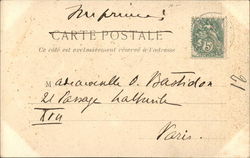 Imprimé
CARTE POSTALE
Ce côté est exclusivement réservé à l'adresse
Mademoiselle O. Bastidon
21 Passage
Paris.